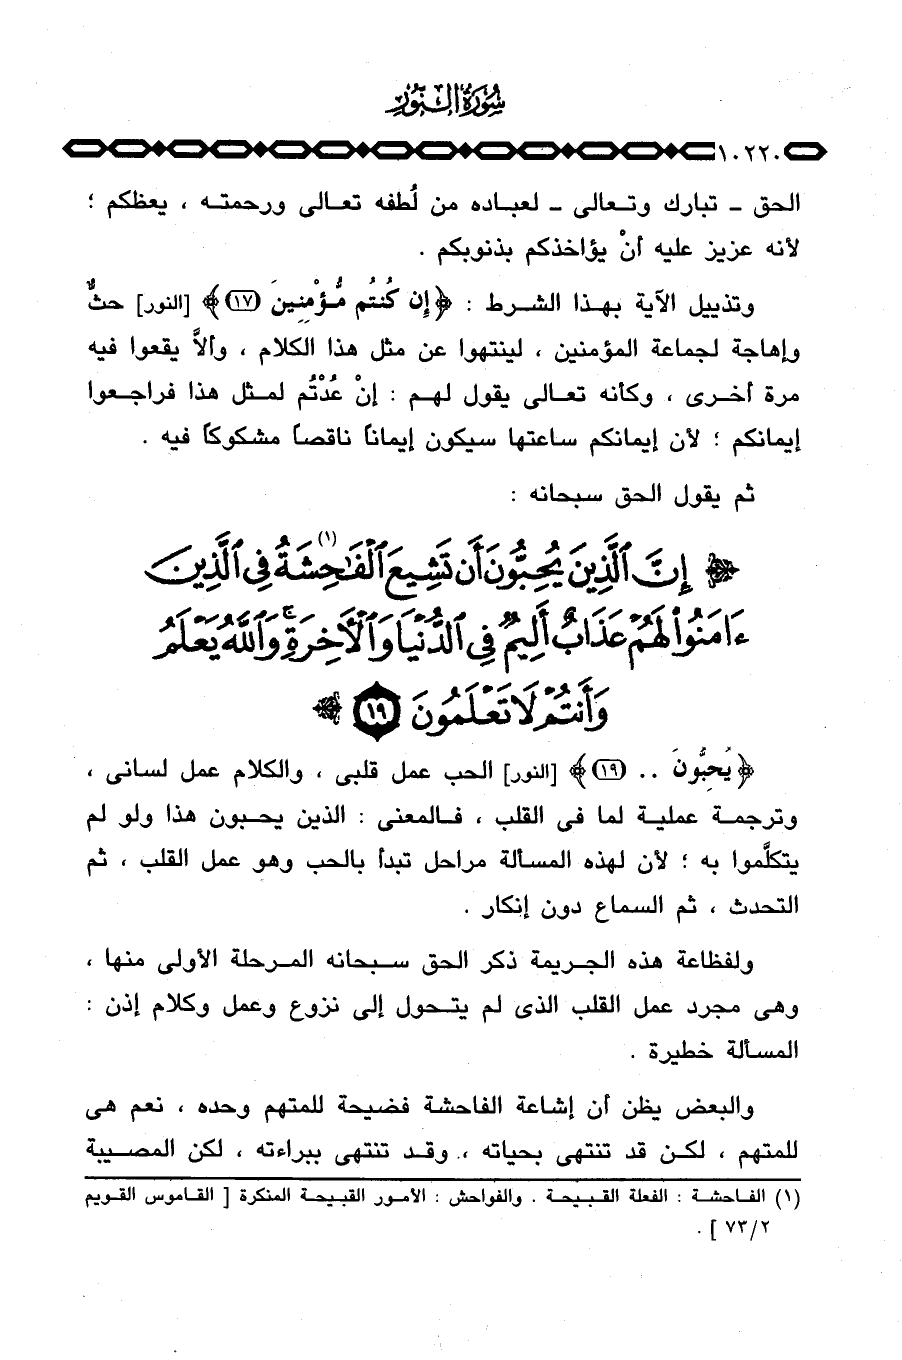 سُورَةُ النُّورِ
١٠٢٢٠
الحق ـ تبارك وتعالى ـ لعباده من لُطفه تعالى ورحمته ، يعظكم ؛
لأنه عزيز عليه أنْ يؤاخذكم بذنوبكم .
وتذييل الآية بهذا الشرط : ﴿إِن كُنتُم مُّؤْمِنِينَ (١٧)﴾ [النور] حثٌّ
وإهاجة لجماعة المؤمنين ، لينتهوا عن مثل هذا الكلام ، وألاَّ يقعوا فيه
مرة أخرى ، وكأنه تعالى يقول لهم : إنْ عُدْتُم لمثل هذا فراجعوا
إيمانكم ؛ لأن إيمانكم ساعتها سيكون إيماناً ناقصاً مشكوكاً فيه .
ثم يقول الحق سبحانه :
﴿ إِنَّ ٱلَّذِينَ يُحِبُّونَ أَن تَشِيعَ ٱلْفَٰحِشَةُ(١) فِى ٱلَّذِينَ
ءَامَنُوا۟ لَهُمْ عَذَابٌ أَلِيمٌ فِى ٱلدُّنْيَا وَٱلْأَخِرَةِ ۚ وَٱللَّهُ يَعْلَمُ
وَأَنتُمْ لَا تَعْلَمُونَ (١٩) ﴾
﴿يُحِبُّونَ .. (١٩)﴾ [النور] الحب عمل قلبى ، والكلام عمل لسانى ،
وترجمة عملية لما فى القلب ، فالمعنى : الذين يحبون هذا ولو لم
يتكلَّموا به ؛ لأن لهذه المسألة مراحل تبدأ بالحب وهو عمل القلب ، ثم
التحدث ، ثم السماع دون إنكار .
ولفظاعة هذه الجريمة ذكر الحق سبحانه المرحلة الأولى منها ،
وهى مجرد عمل القلب الذى لم يتحول إلى نزوع وعمل وكلام إذن :
المسألة خطيرة .
والبعض يظن أن إشاعة الفاحشة فضيحة للمتهم وحده ، نعم هى
للمتهم ، لكن قد تنتهى بحياته ، وقد تنتهى ببراءته ، لكن المصيبة
(١) الفاحشة : الفعلة القبيحة . والفواحش : الأمور القبيحة المنكرة [ القاموس القويم
٧٣/٢ ] .